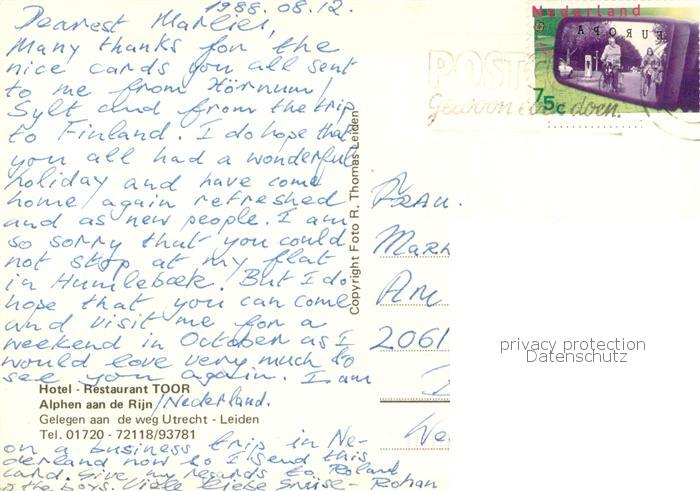 1988.08.12.
Dearest Marlies,
Many thanks for the
nice cards you all sent
to me from Hörnum/
Sylt and from the trip
to Finland. I do hope that
you all had a wonderful
holiday and have come
home again refreshed
and as new people. I am
so sorry that you could
not stop at my flat
in Humlebæk. But I do
hope that you can come
and visit me for a
weekend in October as I
would love very much to
see you again. I am
Hotel - Restaurant TOOR
Alphen aan de Rijn /Nederland.
Gelegen aan de weg Utrecht - Leiden
Tel. 01720 - 72118/93781
on a business trip in Ne-
derland now so I send this
card. Give my regards to Roland
& the boys. Viele liebe Grüsse - Rohan
Copyright Foto R. Thomas Leiden
Nederland
EUROPA
75c
POST
Gewoon doen.
Frau.
Mar
Am
2061
We
privacy protection
Datenschutz